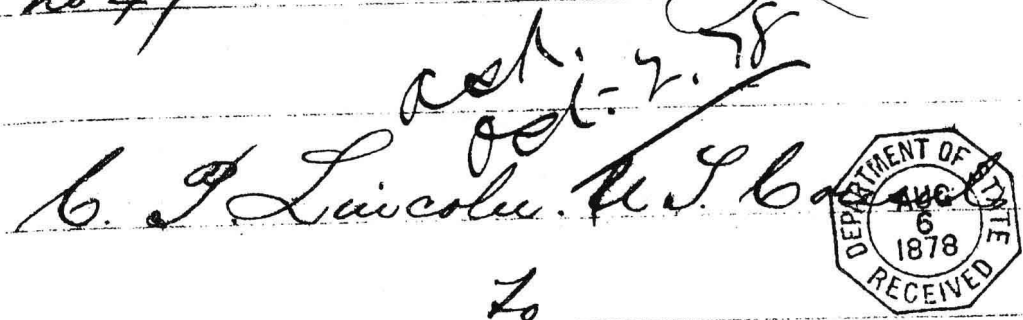 No 47
ack.
Oct. 2. 78
C. P. Lincoln. U S. Consul
To
DEPARTMENT OF STATE
AUG
6
1878
RECEIVED